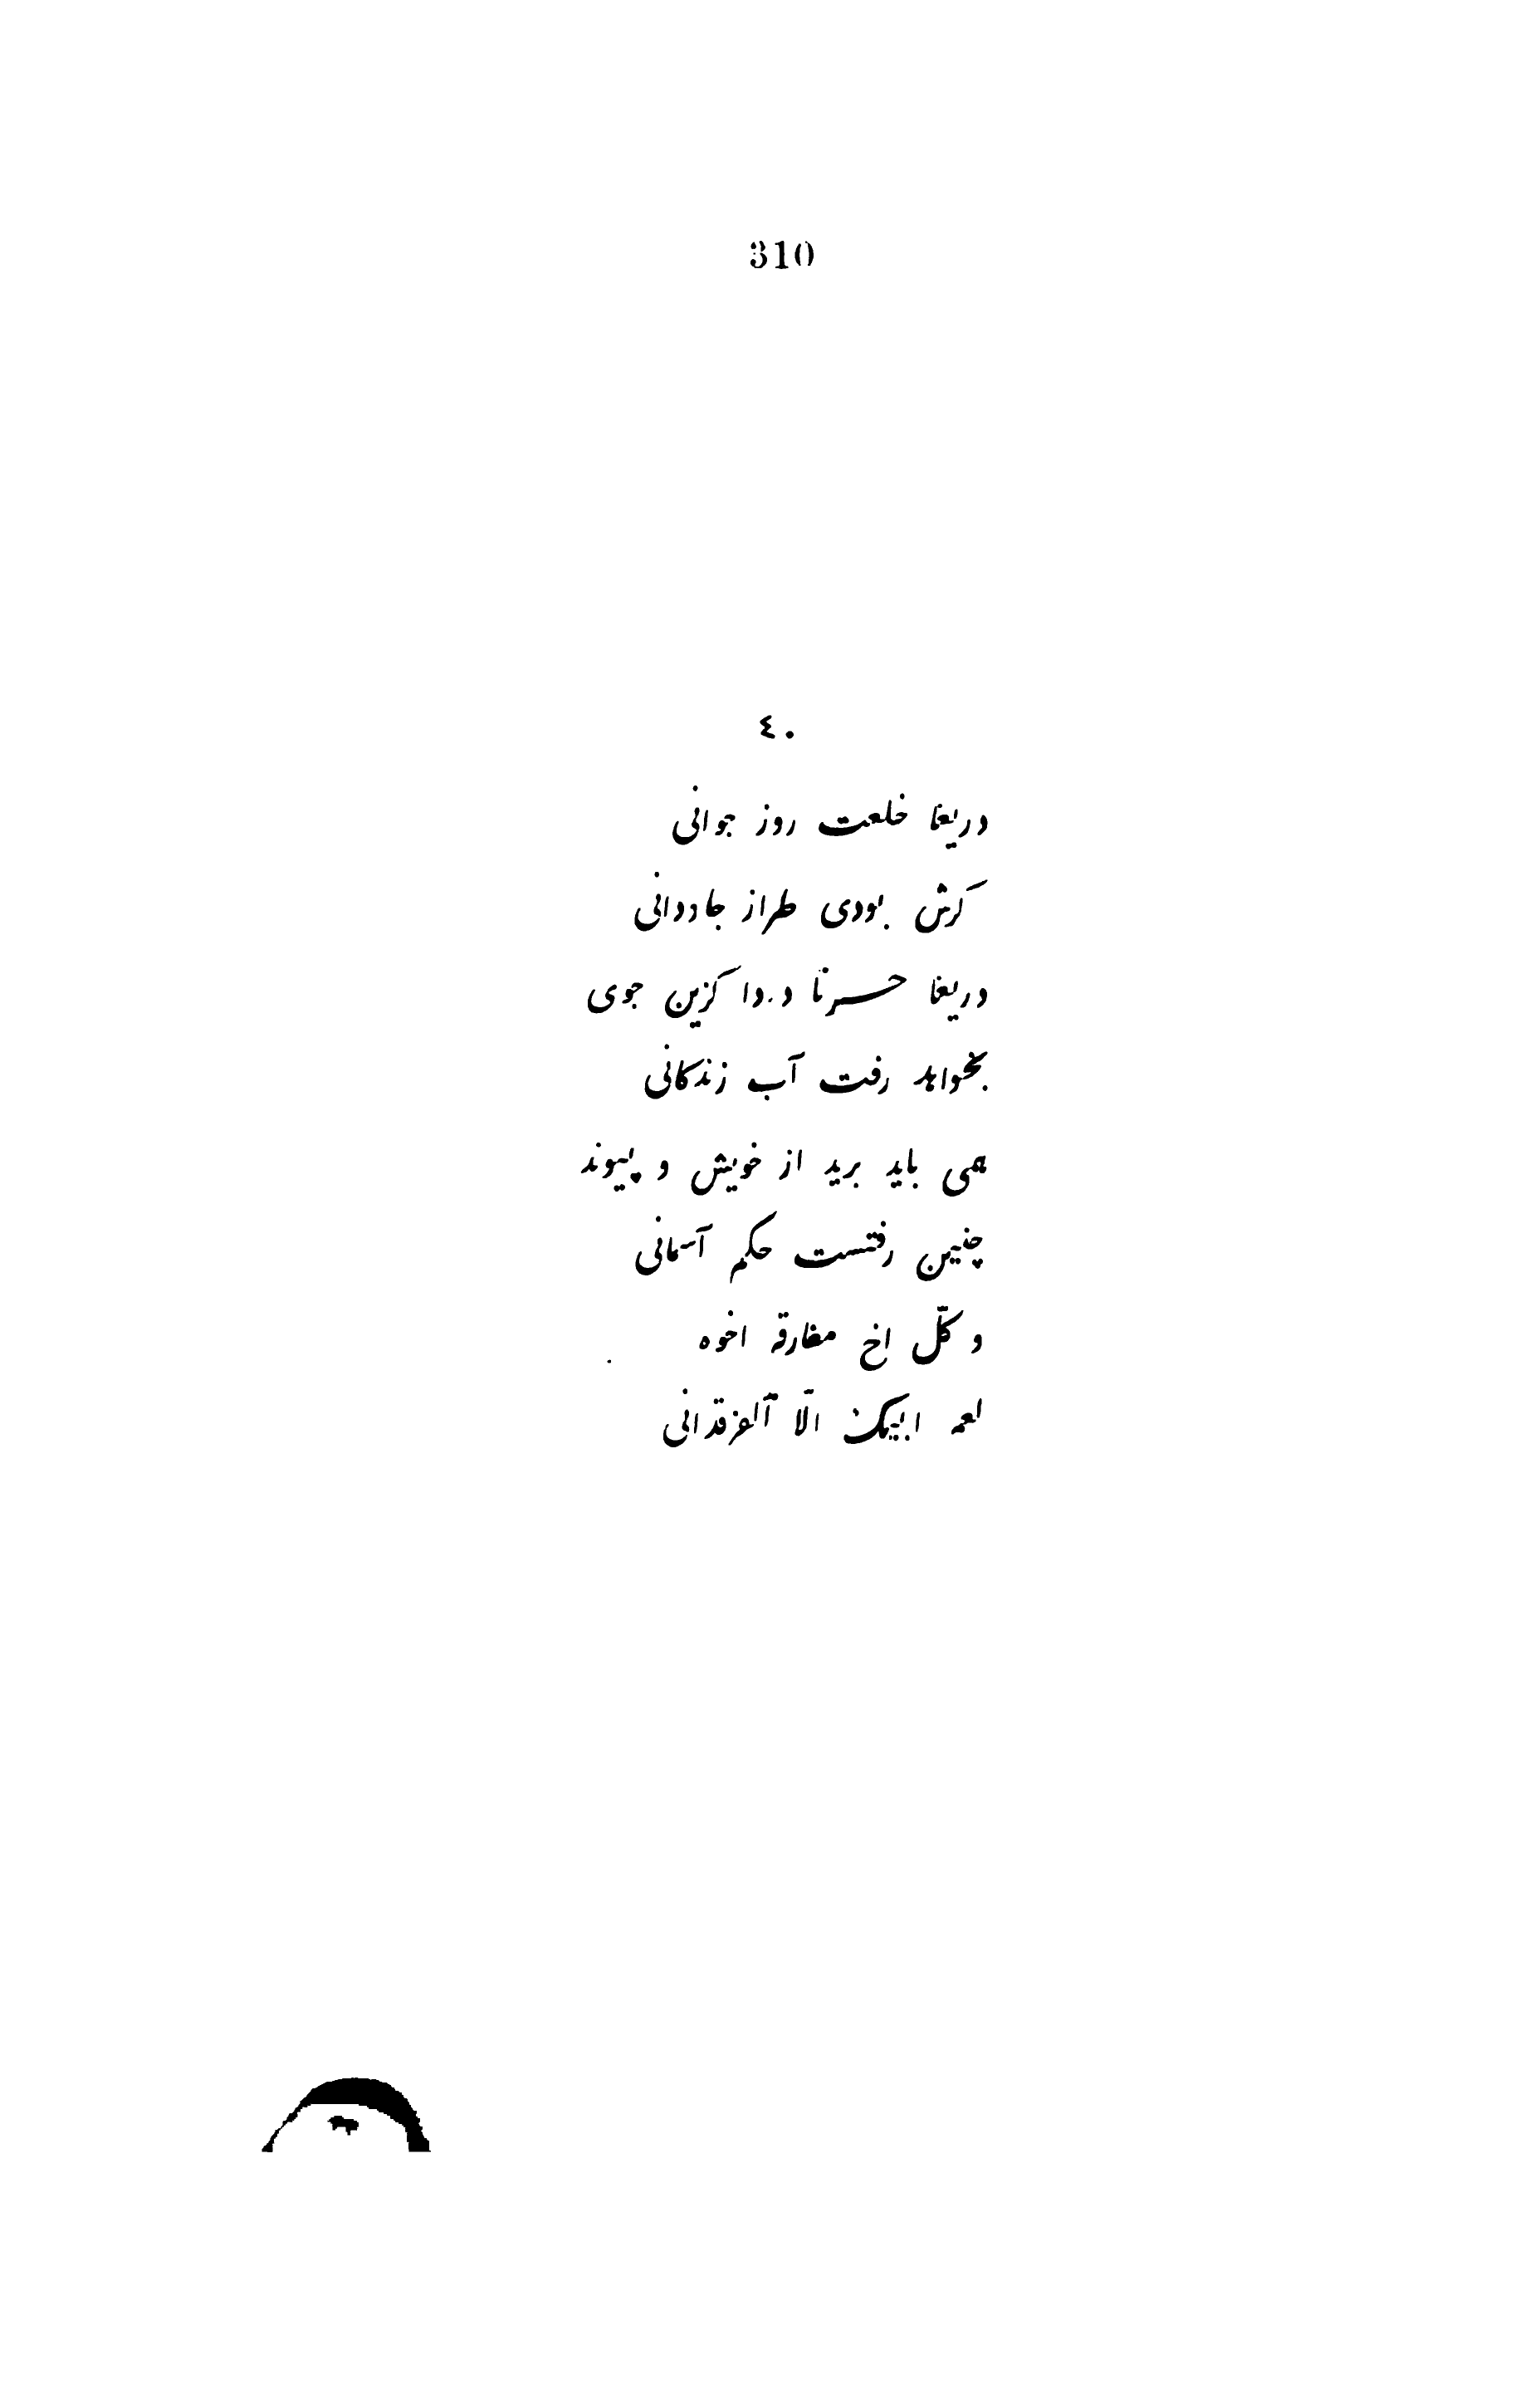 310
٤٠
دریغا خلعت روز جوانی
کرش بودی طراز جاودانی
دریغا حسرتا دردا کزین جوی
بخواهد رفت آب زندکانی
همی باید برید از خویش و پیوند
چنین رفتست حکم آسمانی
و کلّ اخ مفارقه اخوه
لعمر ابیک الّا آلفرقدانی